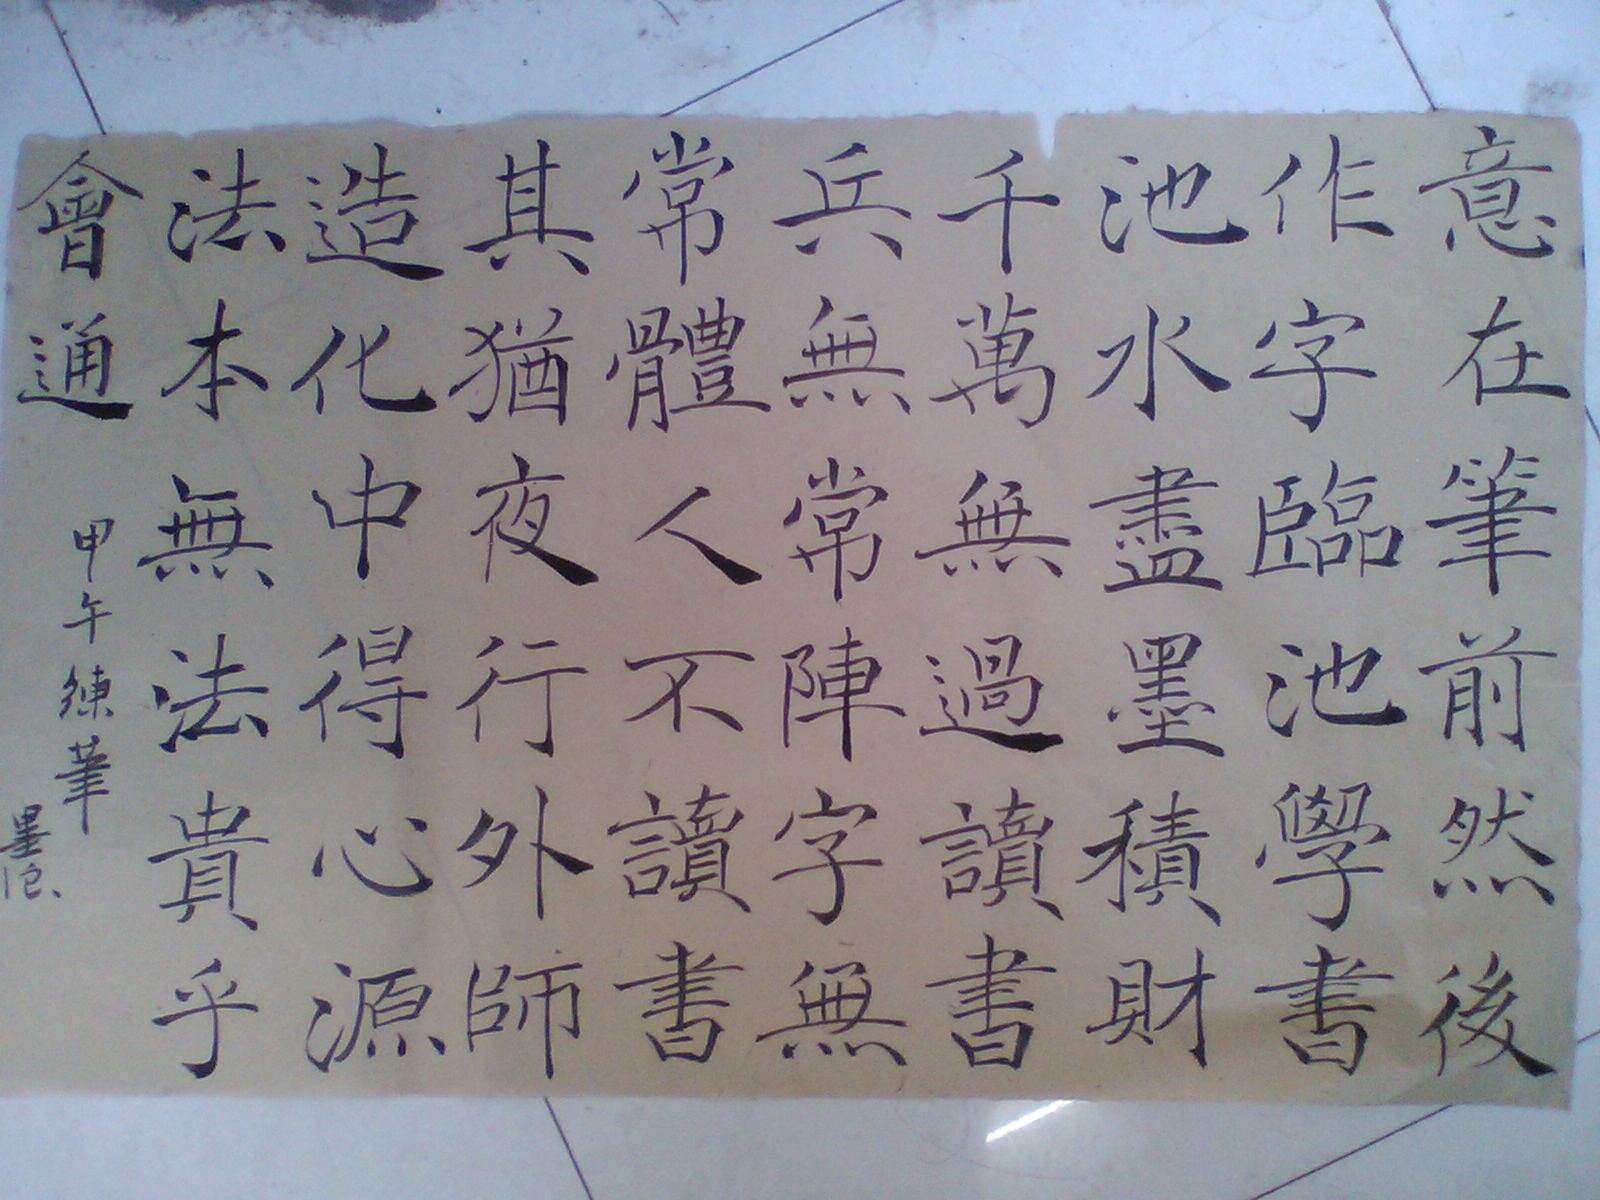 意在筆前然後
作字臨池學書
池水盡墨積財
千萬無過讀書
兵無常陣字無
常體人不讀書
其猶夜行外師
造化中得心源
法本無法貴乎
會通
甲午練筆
墨